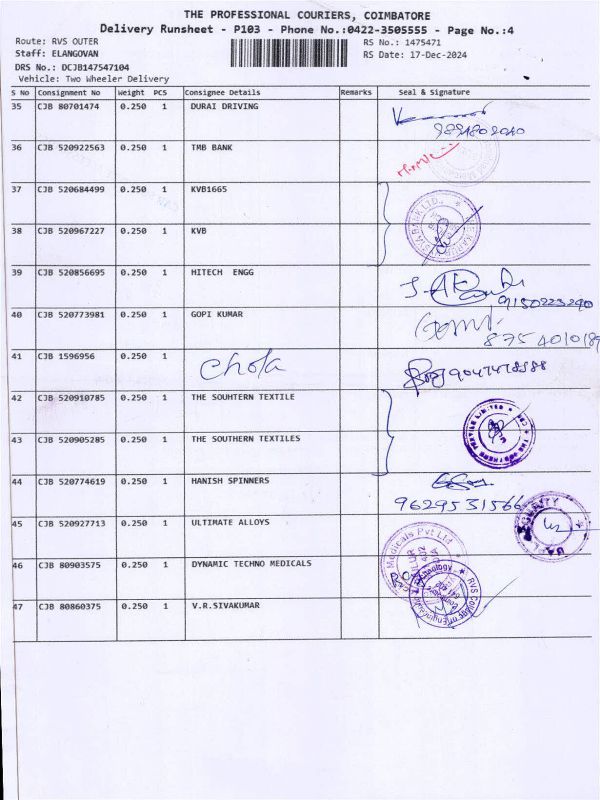 THE PROFESSIONAL COURIERS, COIMBATORE
Delivery Runsheet - P103 - Phone No.:0422-3505555 - Page No.:4
Route: RVS OUTER
RS No.: 1475471
Staff: ELANGOVAN
RS Date: 17-Dec-2024
DRS No.: DCJB147547104
Vehicle: Two Wheeler Delivery
S No Consignment No Weight PCS Consignee Details Remarks Seal & Signature
35 CJB 80701474 0.250 1 DURAI DRIVING
36 CJB 520922563 0.250 1 TMB BANK
37 CJB 520684499 0.250 1 KVB1665
38 CJB 520967227 0.250 1 KVB
39 CJB 520856695 0.250 1 HITECH ENGG
9150223290
40 CJB 520773981 0.250 1 GOPI KUMAR
8754010189
41 CJB 1596956 0.250 1 Chola
9047478588
42 CJB 520910785 0.250 1 THE SOUHTERN TEXTILE
43 CJB 520905285 0.250 1 THE SOUTHERN TEXTILES
44 CJB 520774619 0.250 1 HANISH SPINNERS
9629531566
45 CJB 520927713 0.250 1 ULTIMATE ALLOYS
SECURITY
46 CJB 80903575 0.250 1 DYNAMIC TECHNO MEDICALS
Medicals Pvt Ltd
47 CJB 80860375 0.250 1 V.R.SIVAKUMAR
RVS College of Engineering